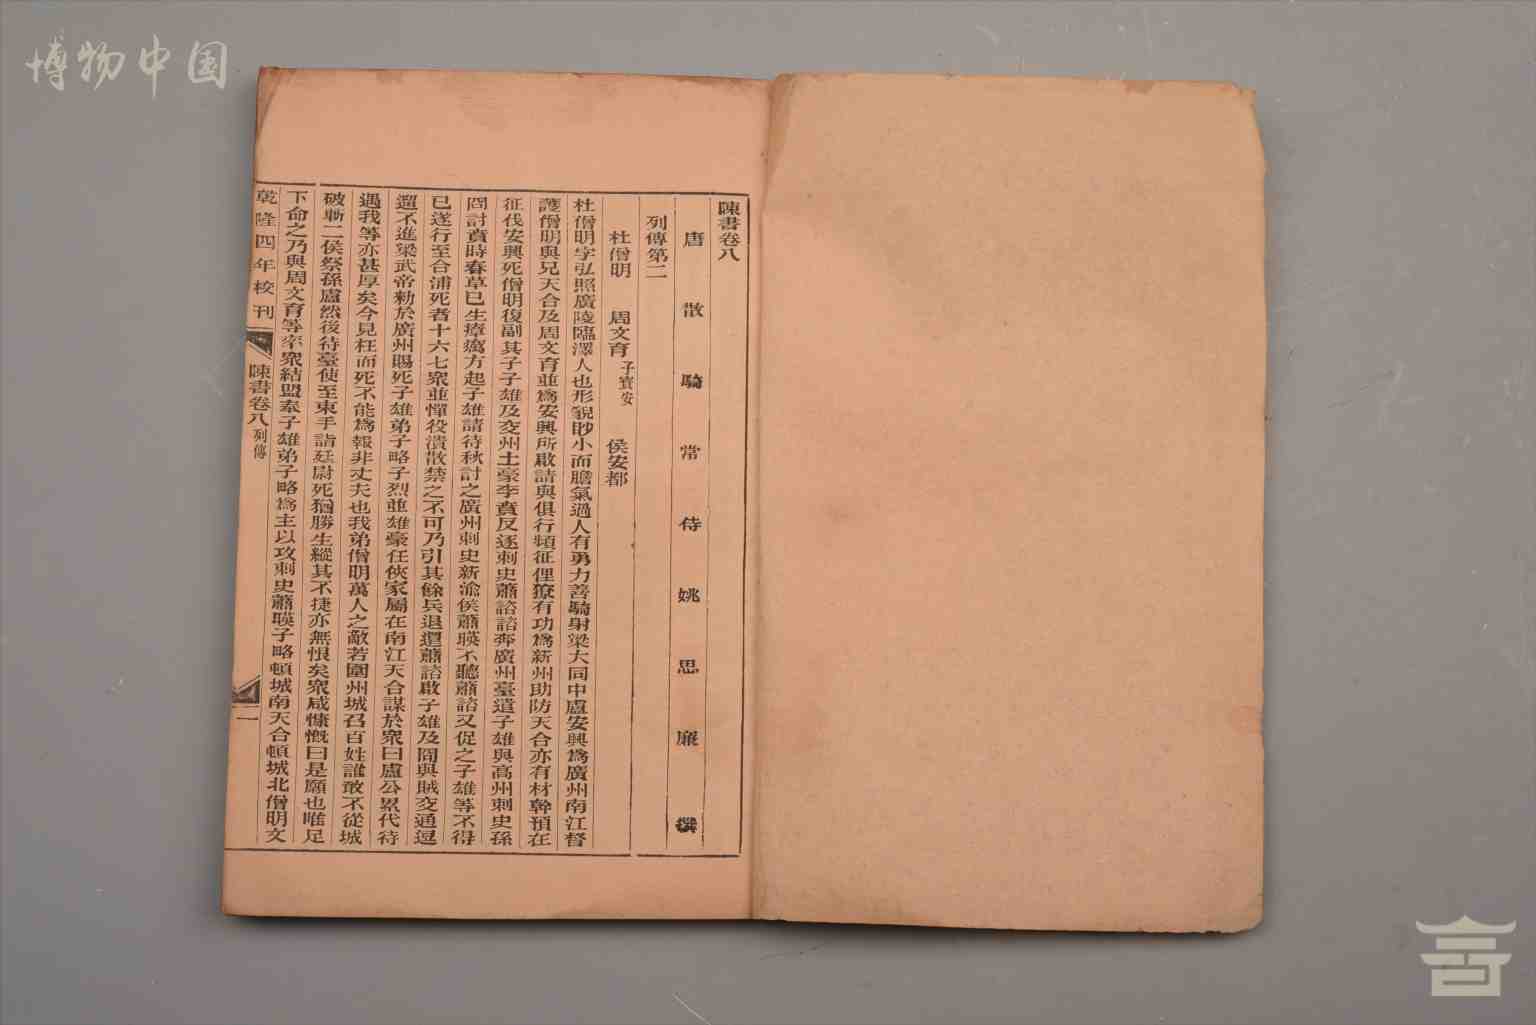 博物中国
陳書卷八
唐散騎常侍姚思廉撰
列傳第二
杜僧明 周文育子寶安 侯安都
杜僧明字弘照廣陵臨澤人也形貌眇小而膽氣過人有勇力善騎射梁大同中盧安興爲廣州南江督
護僧明與兄天合及周文育並爲安興所啟請與俱行頻征俚獠有功爲新州助防天合亦有材幹預在
征伐安興死僧明復副其子子雄及交州土豪李賁反逐刺史蕭諮諮奔廣州臺遣子雄與高州刺史孫
冏討賁時春草已生瘴癘方起子雄請待秋討之廣州刺史新渝侯蕭暎不聽蕭諮又促之子雄等不得
已遂行至合浦死者十六七衆並憚役潰散禁之不可乃引其餘兵退還蕭諮啟子雄及冏與賊交通逗
遛不進梁武帝勑於廣州賜死子雄弟子略子烈並雄豪任俠家屬在南江天合謀於衆曰盧公累代待
遇我等亦甚厚矣今見枉而死不能爲報非丈夫也我弟僧明萬人之敵若圍州城召百姓誰敢不從城
破斬二侯祭孫盧然後待臺使至束手詣廷尉死猶勝生縱其不捷亦無恨矣衆咸慷慨曰是願也唯足
下命之乃與周文育等率衆結盟奉子雄弟子略爲主以攻刺史蕭暎子略頓城南天合頓城北僧明文
乾隆四年校刊 陳書卷八列傳 一